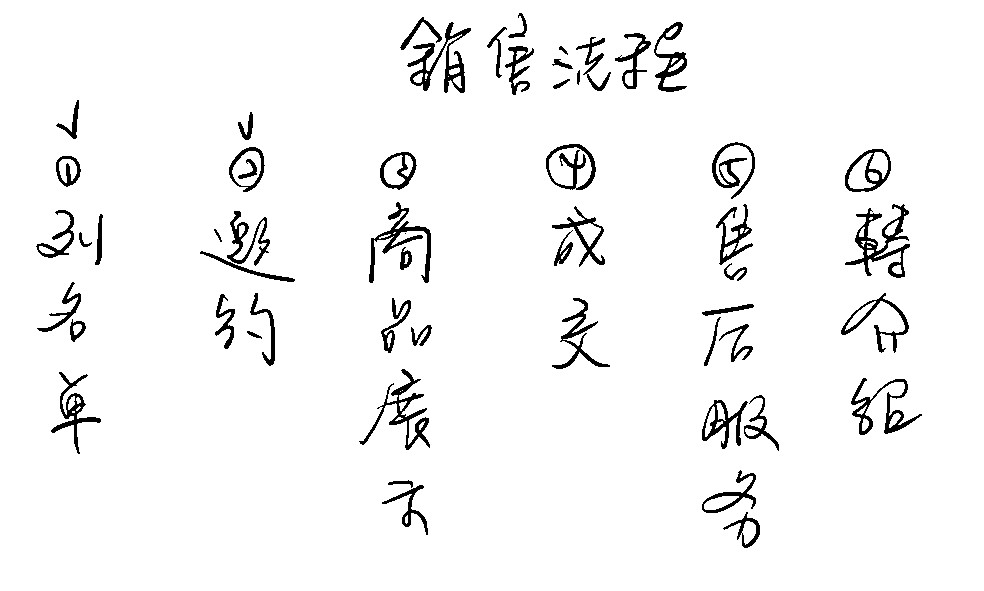 銷售流程
①列名单
②邀约
③商品展示
④成交
⑤售后服务
⑥轉介紹